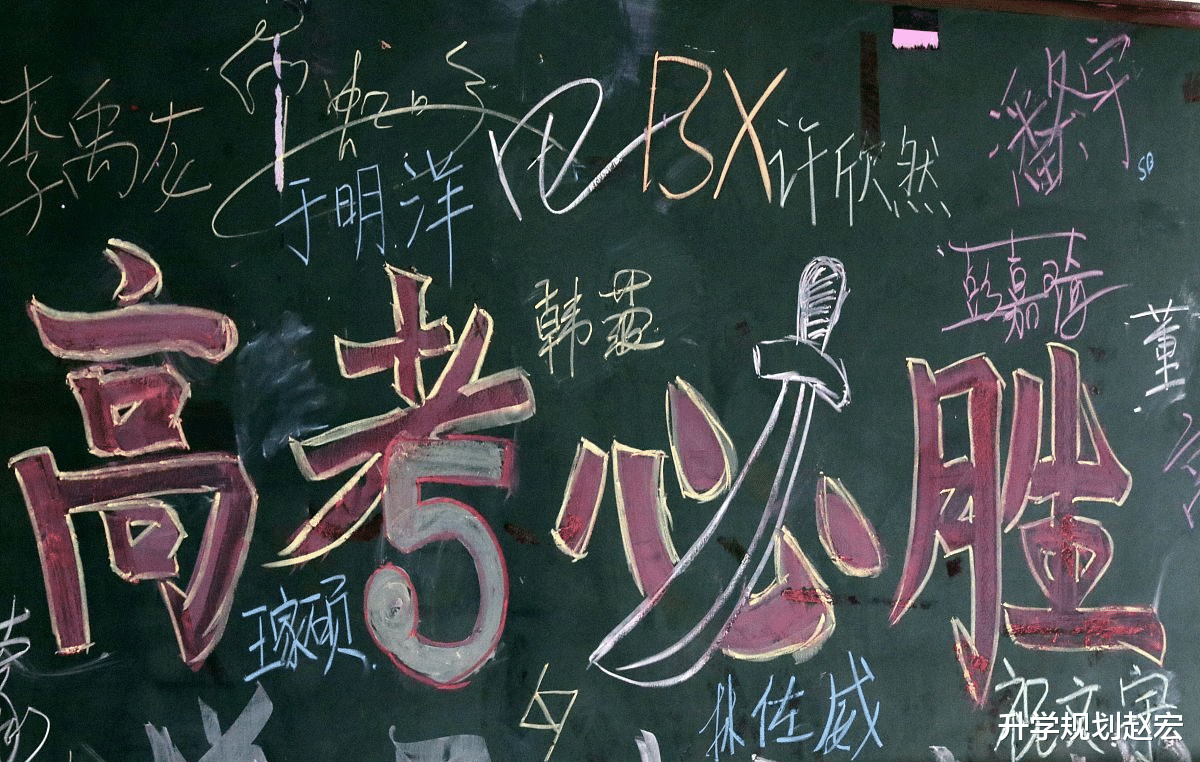 李禹龙
BX
许欣然
潘俊宇
SB
于明洋
韩菠
彭嘉晗
董
高考必胜
王家硕
林佐威
祝文宇
升学规划赵宏